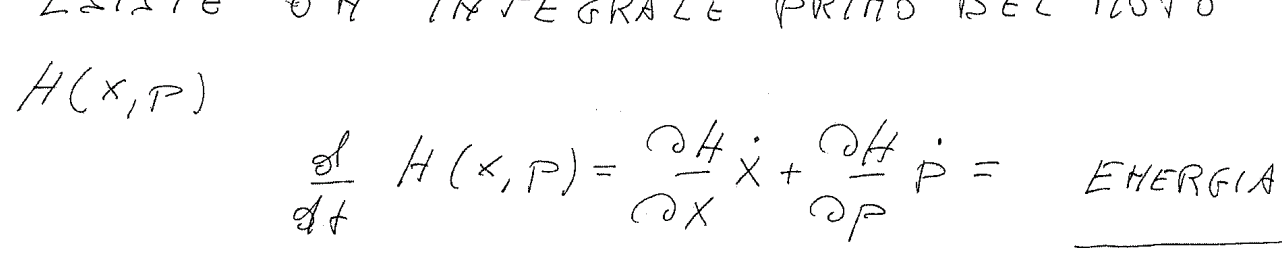 ESISTE UN INTEGRALE PRIMO DEL MOTO
H(x,p)
d/dt H(x,p) = ∂H/∂x ẋ + ∂H/∂p ṗ = ENERGIA